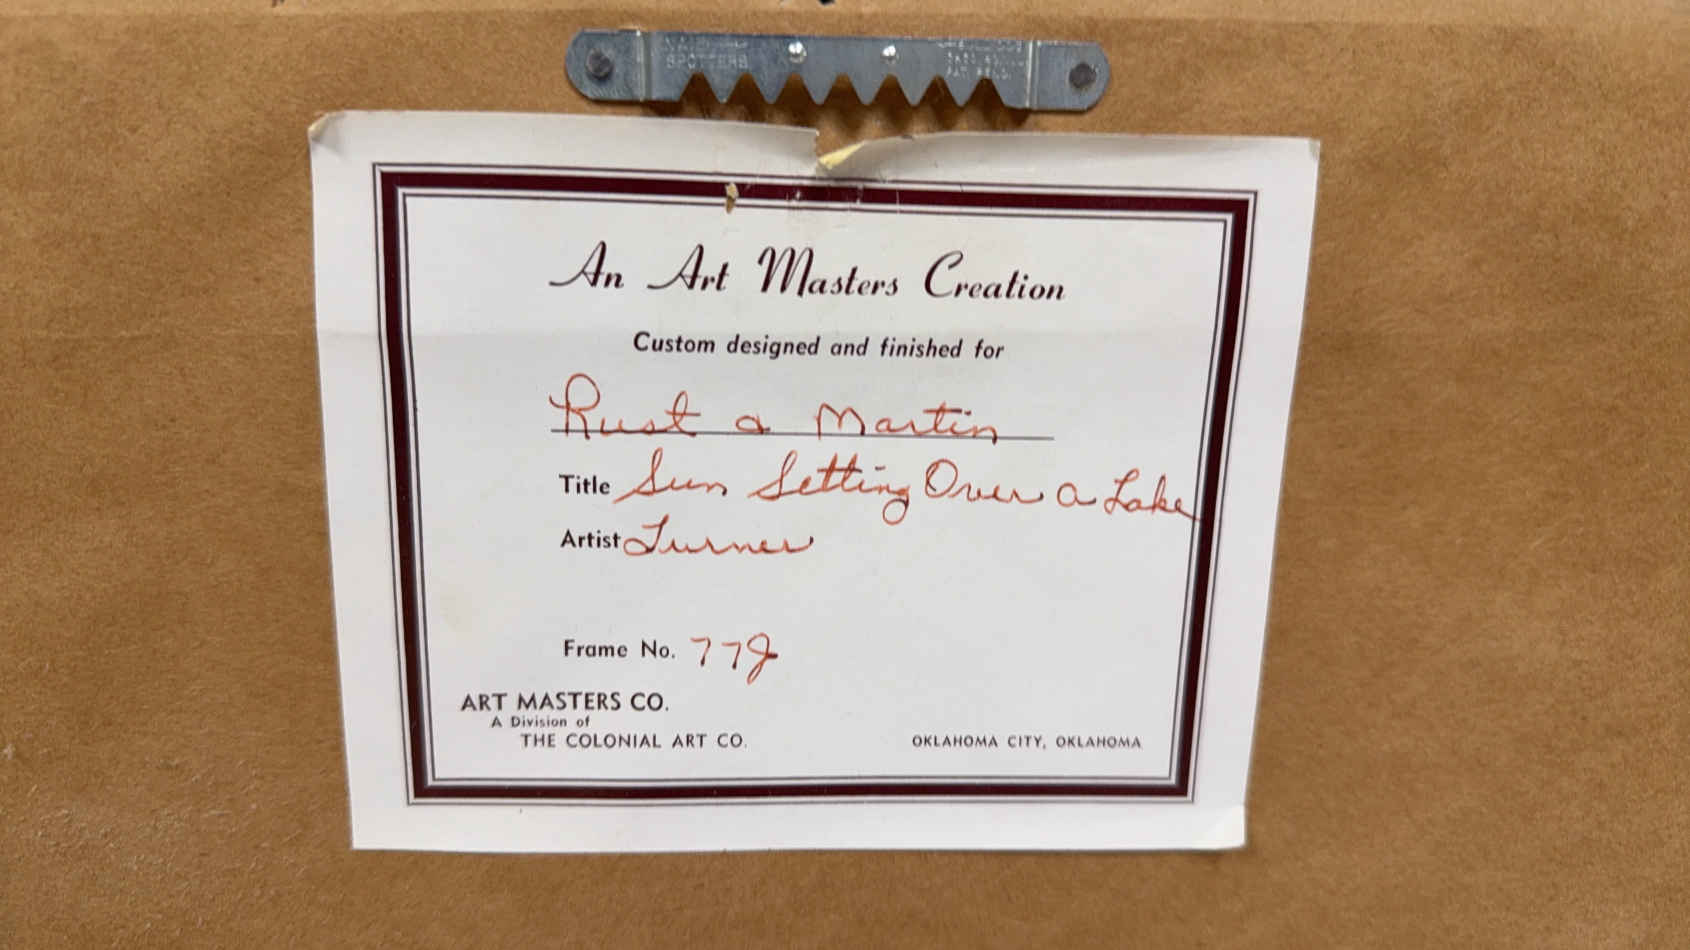 NATIONAL
SPOTTERS
An Art Masters Creation
Custom designed and finished for
Rust & Martin
Title Sun Setting Over a Lake
Artist Turner
Frame No. 77J
ART MASTERS CO.
A Division of
THE COLONIAL ART CO.
OKLAHOMA CITY, OKLAHOMA